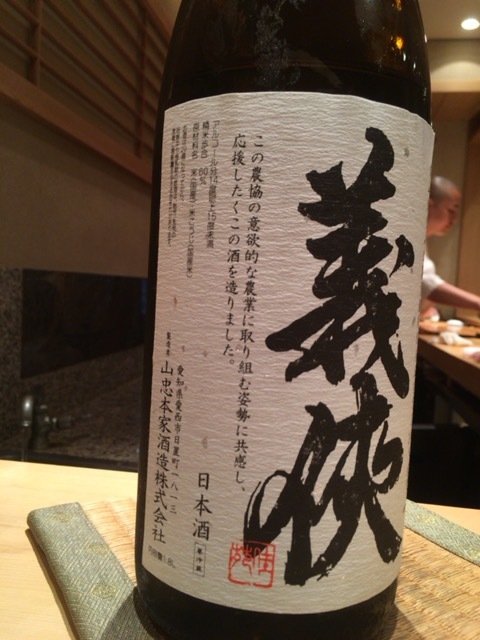 義侠
この農協の意欲的な農業に取り組む姿勢に共感し、
応援したくこの酒を造りました。
アルコール分14度以上15度未満
精米歩合 60%
原材料名 米(国産)・米こうじ(国産米)
日本酒
要冷蔵
愛知県愛西市日置町一八一三
製造者 山忠本家酒造株式会社
内容量1.8L